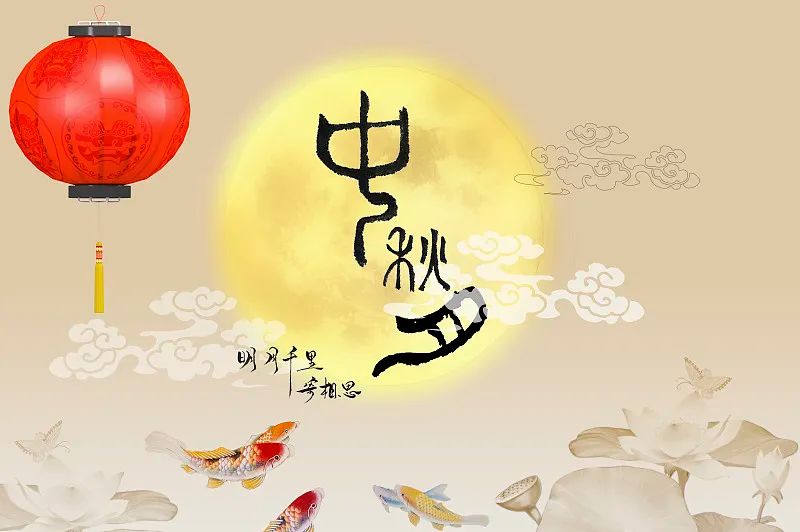 中秋月
明月千里
寄相思